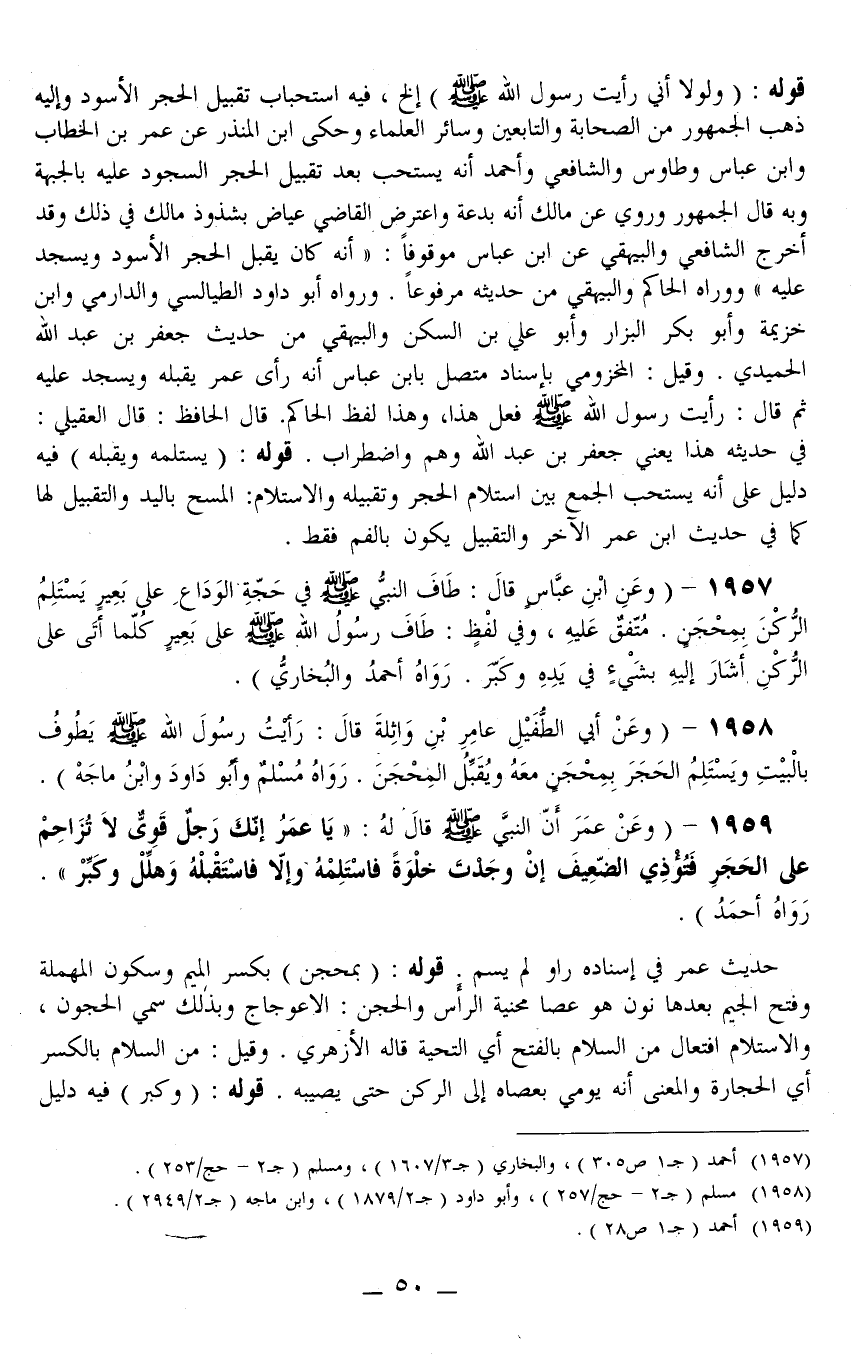 قوله : ( ولولا أني رأيت رسول الله ﷺ ) إلخ ، فيه استحباب تقبيل الحجر الأسود وإليه
ذهب الجمهور من الصحابة والتابعين وسائر العلماء وحكى ابن المنذر عن عمر بن الخطاب
وابن عباس وطاوس والشافعي وأحمد أنه يستحب بعد تقبيل الحجر السجود عليه بالجبهة
وبه قال الجمهور وروي عن مالك أنه بدعة واعترض القاضي عياض بشذوذ مالك في ذلك وقد
أخرج الشافعي والبيهقي عن ابن عباس موقوفاً : « أنه كان يقبل الحجر الأسود ويسجد
عليه » ووراه الحاكم والبيهقي من حديثه مرفوعاً . ورواه أبو داود الطيالسي والدارمي وابن
خزيمة وأبو بكر البزار وأبو علي بن السكن والبيهقي من حديث جعفر بن عبد الله
الحميدي . وقيل : المخزومي بإسناد متصل بابن عباس أنه رأى عمر يقبله ويسجد عليه
ثم قال : رأيت رسول الله ﷺ فعل هذا، وهذا لفظ الحاكم. قال الحافظ : قال العقيلي :
في حديثه هذا يعني جعفر بن عبد الله وهم واضطراب . قوله : ( يستلمه ويقبله ) فيه
دليل على أنه يستحب الجمع بين استلام الحجر وتقبيله والاستلام: المسح باليد والتقبيل لها
كما في حديث ابن عمر الآخر والتقبيل يكون بالفم فقط .
١٩٥٧ - ( وعَنِ ابْنِ عبَّاسٍ قالَ : طَافَ النبيُّ ﷺ في حَجّةِ الوَدَاعِ على بَعِيرٍ يَسْتَلِمُ
الرُّكْنَ بِمِحْجَنٍ . مُتّفقٌ عَليهِ ، وفي لفْظٍ : طَافَ رسولُ الله ﷺ على بَعِيرٍ كُلّما أتَى على
الرُّكْنِ أشَارَ إليهِ بشَيْءٍ في يَدِهِ وكَبّرَ . رَوَاهُ أحمدُ والبُخاريُّ ) .
١٩٥٨ - ( وعَنْ أبي الطُّفَيْلِ عامِرِ بْنِ وَاثِلةَ قالَ : رَأيْتُ رسولَ الله ﷺ يَطُوفُ
بالْبَيْتِ ويَسْتَلِمُ الحَجَرَ بِمِحْجَنٍ معَهُ ويُقَبِّلُ المِحْجَنَ . رَوَاهُ مُسْلمٌ وأبُو دَاودَ وابْنُ ماجَهْ ) .
١٩٥٩ - ( وعَنْ عمَرَ أَنّ النبيَّ ﷺ قالَ لهُ : « يَا عمَرُ إنّكَ رَجلٌ قَوِىٌّ لاَ تُزَاحِمْ
على الحَجَرِ فَتُؤْذِي الضّعِيفَ إنْ وجَدْتَ خلْوَةً فاسْتَلِمْهُ وإلّا فاسْتَقْبلْهُ وَهلِّل وكَبِّرْ » .
رَوَاهُ أحمَدُ ) .
حديث عمر في إسناده راو لم يسم . قوله : ( بمحجن ) بكسر الميم وسكون المهملة
وفتح الجيم بعدها نون هو عصا محنية الرأس والحجن : الاعوجاج وبذلك سمي الحجون ،
والاستلام افتعال من السلام بالفتح أي التحية قاله الأزهري . وقيل : من السلام بالكسر
أي الحجارة والمعنى أنه يومي بعصاه إلى الركن حتى يصيبه . قوله : ( وكبر ) فيه دليل
(١٩٥٧) أحمد ( جـ١ ص٣٠٥ ) ، والبخاري ( جـ١٦٠٧/٣ ) ، ومسلم ( جـ٢ - حج/٢٥٣ ) .
(١٩٥٨) مسلم ( جـ٢ - حج/٢٥٧ ) ، وأبو داود ( جـ١٨٧٩/٢ ) ، وابن ماجه ( جـ٢٩٤٩/٢ ) .
(١٩٥٩) أحمد ( جـ١ ص٢٨ ) .
_ ٥٠ _